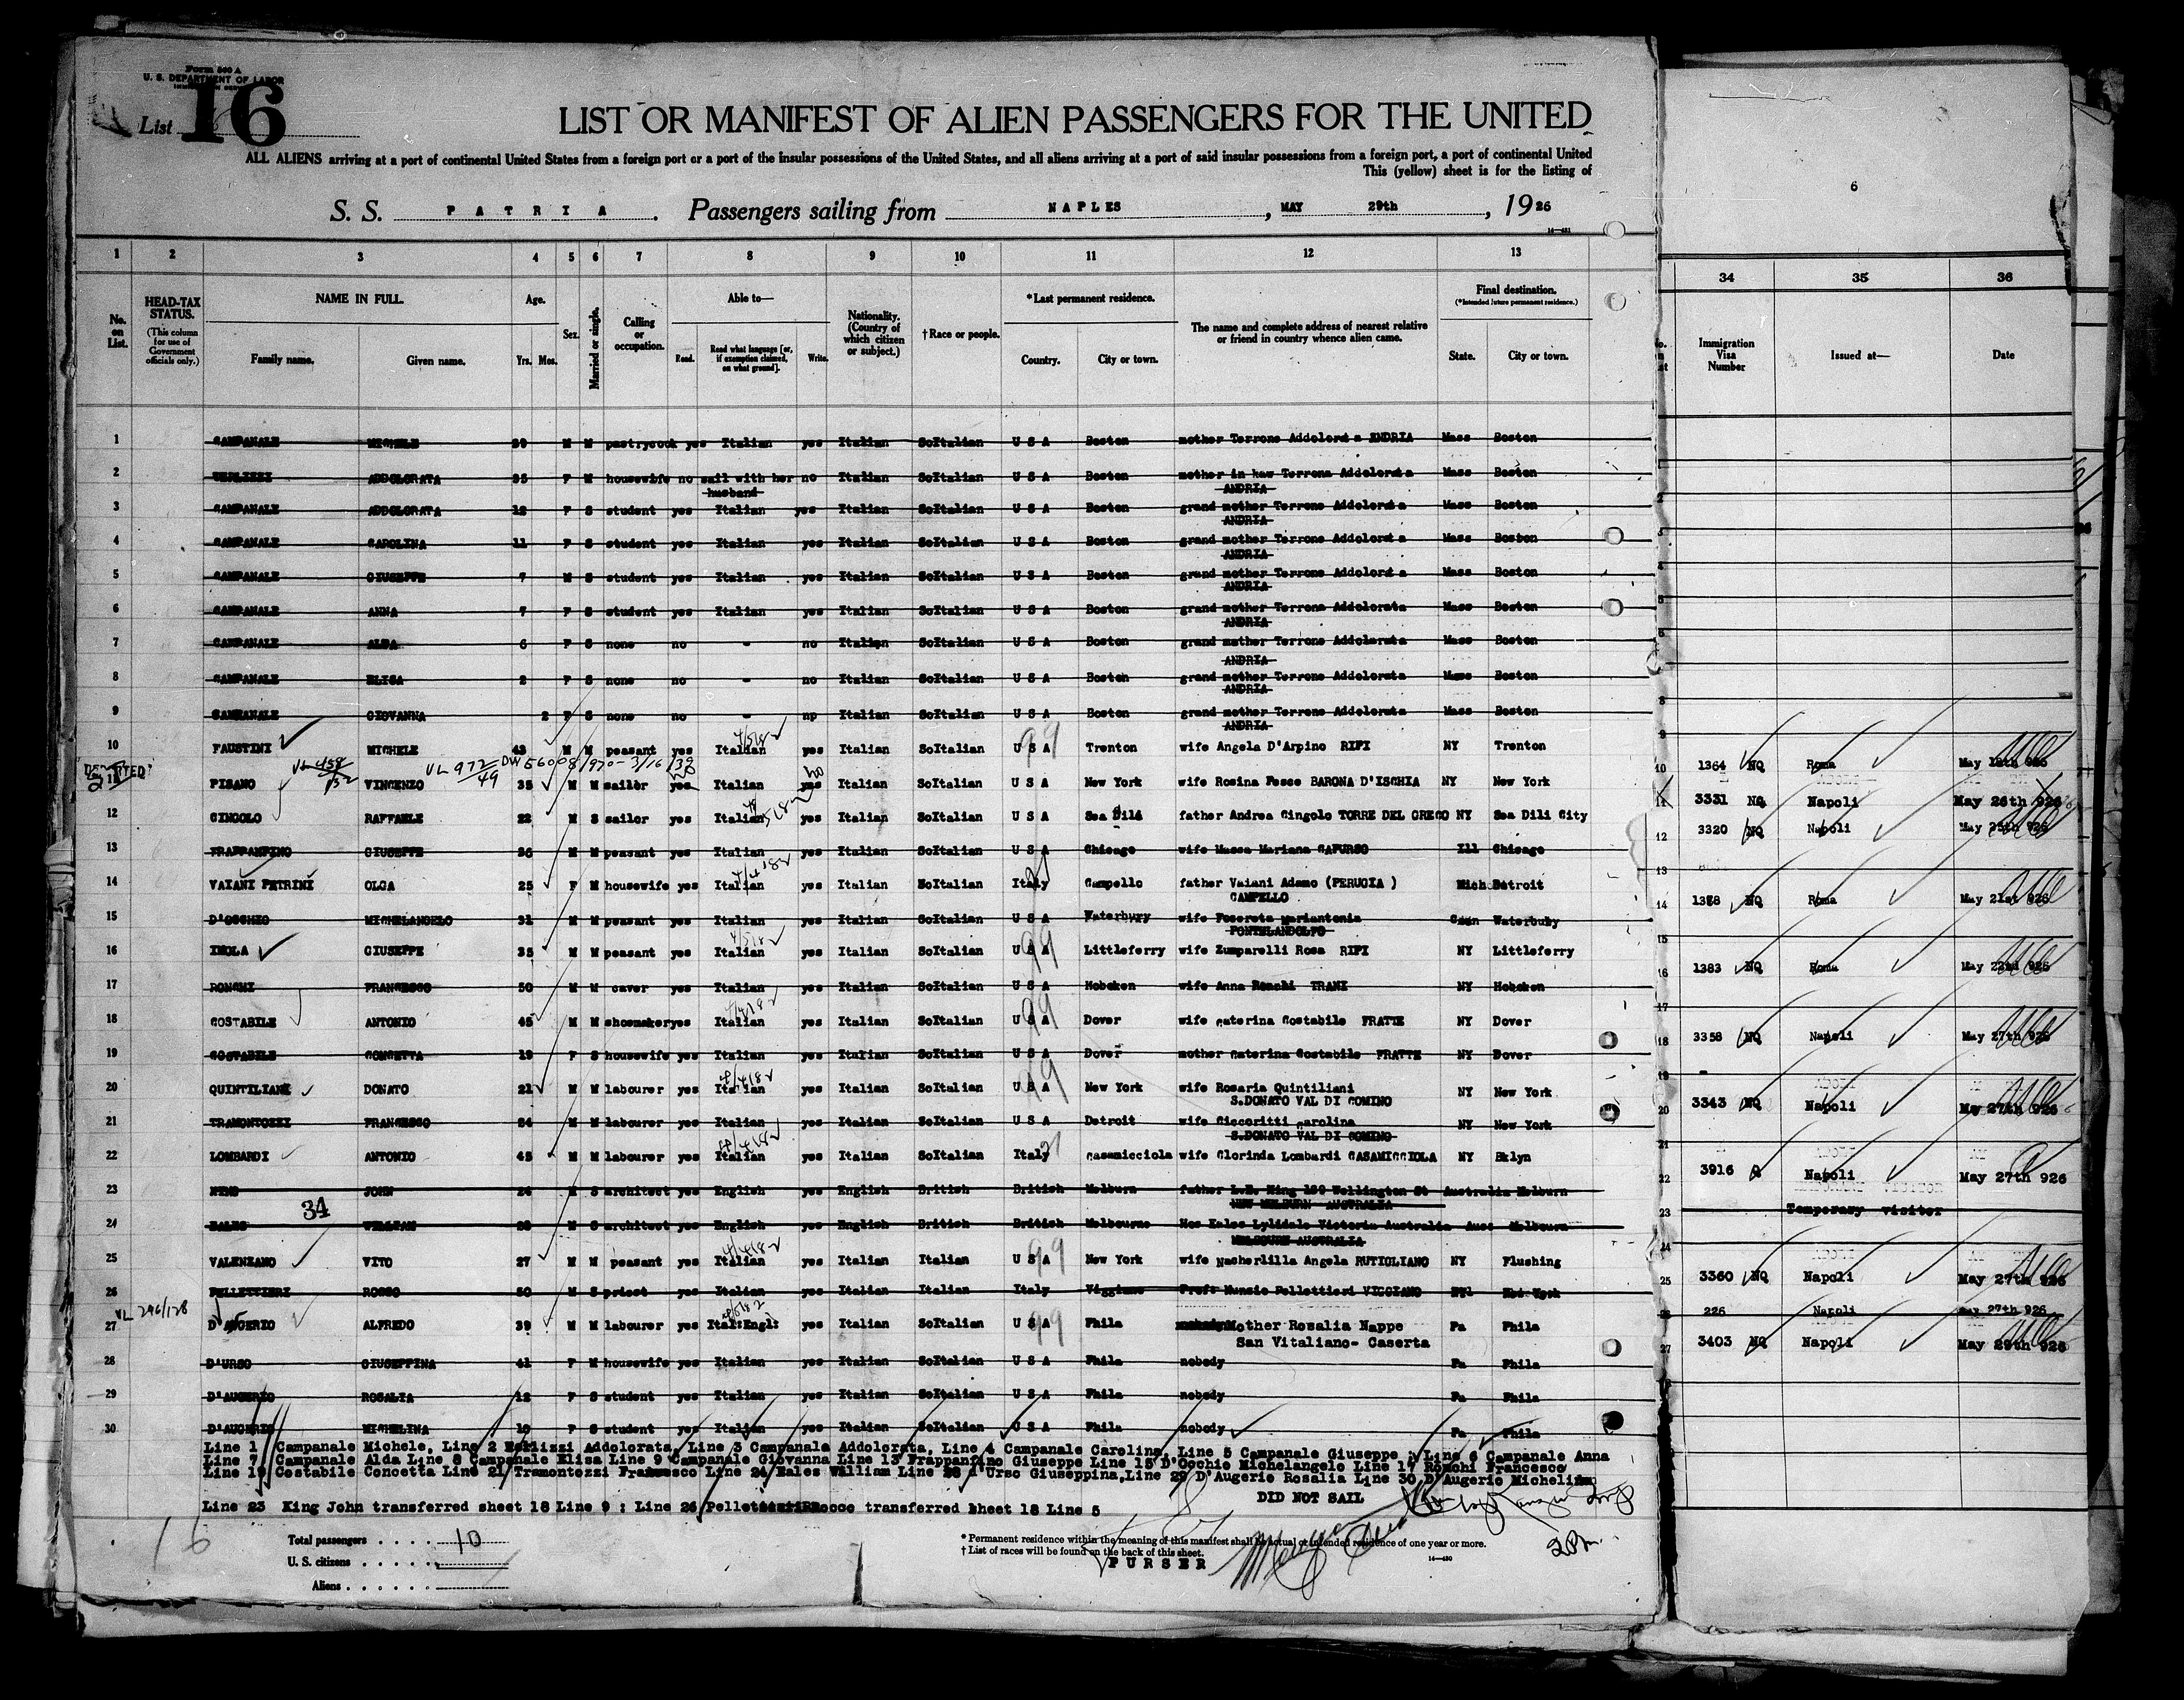 Form 500 A
U. S. DEPARTMENT OF LABOR
List 16
LIST OR MANIFEST OF ALIEN PASSENGERS FOR THE UNITED
ALL ALIENS arriving at a port of continental United States from a foreign port or a port of the insular possessions of the United States, and all aliens arriving at a port of said insular possessions from a foreign port, a port of continental United
This (yellow) sheet is for the listing of
6
S. S. PATRIA. Passengers sailing from NAPLES, MAY 29th, 1926
1 2 3 4 5 6 7 8 9 10 11 12 13 34 35 36
No. on List.
HEAD-TAX STATUS.
(This column for use of Government officials only.)
NAME IN FULL.
Family name. Given name.
Age.
Yrs. Mos.
Sex.
Married or single.
Calling or occupation.
Able to—
Read. Read what language [or, if exemption claimed, on what ground]. Write.
Nationality. (Country of which citizen or subject.)
†Race or people.
*Last permanent residence.
Country. City or town.
The name and complete address of nearest relative or friend in country whence alien came.
Final destination.
(*Intended future permanent residence.)
State. City or town.
Immigration Visa Number
Issued at—
Date
1 CAMPANALE MICHELE 39 M M pastrycook yes Italian yes Italian SoItalian U S A Boston mother Terrone Addolorata ANDRIA Mass Boston
2 ADDOLORATA 35 F M housewife no sail with her no Italian SoItalian U S A Boston mother in haw Terrone Addolorata Mass Boston
husband ANDRIA
3 CAMPANALE ADDOLORATA 12 F S student yes Italian yes Italian SoItalian U S A Boston grand mother Terrone Addolorata Mass Boston
ANDRIA
4 CAMPANALE CAROLINA 11 F S student yes Italian yes Italian SoItalian U S A Boston grand mother Terrone Addolorata Mass Boston
ANDRIA
5 CAMPANALE GIUSEPPE 7 M S student yes Italian yes Italian SoItalian U S A Boston grand mother Terrone Addolorata Mass Boston
ANDRIA
6 CAMPANALE ANNA 7 F S student yes Italian yes Italian SoItalian U S A Boston grand mother Terrone Addolorata Mass Boston
ANDRIA
7 CAMPANALE ALDA 6 F S none no - no Italian SoItalian U S A Boston grand mother Terrone Addolorata Mass Boston
ANDRIA
8 CAMPANALE ELISA 2 F S none no - no Italian SoItalian U S A Boston grand mother Terrone Addolorata Mass Boston
ANDRIA
9 CAMPANALE GIOVANNA 2 F S none no - np Italian SoItalian U S A Boston grand mother Terrone Addolorata Mass Boston
ANDRIA
10 FAUSTINI MICHELE 43 M M peasant yes Italian yes Italian SoItalian U S A 99 Trenton wife Angela D'Arpino RIPI NY Trenton 1364 NQ Roma May 18th 926
VL 972/49
11 PISANO VINCENZO 35 M M sailor yes no Italian yes no Italian SoItalian U S A New York wife Rosina Fesce BARONA D'ISCHIA NY New York 3331 NQ Napoli May 26th 926
12 CINGOLO RAFFAELE 22 M S sailor yes Italian yes Italian SoItalian U S A father Andrea Cingolo TORRE DEL GRECO NY Sea Dili City 3320 NQ Napoli May 25th 926
13 FRAPPAMPINO GIUSEPPE 36 M M peasant yes Italian yes Italian SoItalian U S A Chicago wife Massa Mariana CAPURSO Ill Chicago
14 VAIANI PETRINI OLGA 25 F M housewife yes Italian yes Italian NoItalian Italy Campello father Vaiani Adamo (PERUGIA ) Mich Detroit 1378 NQ Roma May 21st 926
CAMPELLO
15 D'OCCHIO MICHELANGELO 31 M M peasant yes Italian yes Italian SoItalian U S A Waterbury wife Fosereta Mariantonia Conn Waterbury
PONTELANDOLFO
16 IMOLA GIUSEPPE 35 M M peasant yes Italian yes Italian SoItalian U S A 99 Littleferry wife Zumparelli Rosa RIPI NY Littleferry 1383 NQ Roma May 22nd 926
17 RONCHI FRANCESCO 50 M M caver yes Italian yes Italian SoItalian U S A Hoboken wife Anna Ronchi TRANI NY Hoboken
18 COSTABILE ANTONIO 45 M M shoemaker yes Italian yes Italian SoItalian U S A 99 Dover wife Caterina Costabile FRATTE NY Dover 3358 NQ Napoli May 27th 926
19 COSTABILE CONCETTA 19 F S housewife yes Italian yes Italian SoItalian U S A Dover mother Caterina Costabile FRATTE NY Dover
20 QUINTILIANI DONATO 21 M M labourer yes Italian yes Italian SoItalian U S A 99 New York wife Rosaria Quintiliani NY New York 3343 NQ Napoli May 27th 926
S.DONATO VAL DI COMINO
21 TRAMONTOZZI FRANCESCO 34 M M labourer yes Italian yes Italian SoItalian U S A Detroit wife Ciscoritti Carolina NY New York
S.DONATO VAL DI COMINO
22 LOMBARDI ANTONIO 45 M M labourer yes Italian yes Italian SoItalian Italy Casamicciola wife Clorinda Lombardi CASAMICCIOLA NY Bklyn 3916 Q Napoli May 27th 926
23 KING JOHN 24 M S architect yes English yes English British British Melburn father L.E. King 130 Wellington St Australia Melburn Temporary visitor
NEW MELBURN AUSTRALIA
34
24 EALES WILLIAM 28 M S architect yes English yes English British British Melbourne Mos Eales Lylidale Victoria Australia Aust Melbourn
MELBOURN AUSTRALIA
25 VALENZANO VITO 27 M M peasant yes Italian yes Italian Italian U S A 99 New York wife Nacherlilla Angela RUTIGLIANO NY Flushing 3360 NQ Napoli May 27th 926
26 PELLETTIERI ROCCO 50 M S priest yes Italian yes Italian SoItalian Italy Viggiano Prof: Nunzio Pellettieri VIGGIANO NY New York 226 Napoli May 27th 926
VL 296/128
27 D'AUGERIO ALFREDO 39 M M labourer yes Ital:Engl: yes Italian SoItalian U S A 99 Phila Mother Rosalia Nappe Pa Phila 3403 NQ Napoli May 29th 926
San Vitaliano- Caserta
28 D'URSO GIUSEPPINA 41 F M housewife yes Italian yes Italian SoItalian U S A Phila nobody Pa Phila
29 D'AUGERIO ROSALIA 12 F S student yes Italian yes Italian SoItalian U S A Phila nobody Pa Phila
30 D'AUGERIO MICHELINA 10 F S student yes Italian yes Italian SoItalian U S A Phila nobody Pa Phila
Line 1 Campanale Michele, Line 2 Addolorata, Line 3 Campanale Addolorata, Line 4 Campanale Carolina, Line 5 Campanale Giuseppe ; Line 6 Campanale Anna
Line 7 Campanale Alda Line 8 Campanale Elisa Line 9 Campanale Giovanna Line 13 Frappanfino Giuseppe Line 15 D'Occhio Michelangelo Line 17 Ronchi Francesco
Line 19 Costabile Concetta Line 21 Tramontozzi Francesco Line 24 Eales William Line 28 d'Urso Giuseppina, Line 29 D'Augerie Rosalia Line 30 D'Augerie Michelina
DID NOT SAIL
Line 23 King John transferred sheet 18 Line 9 : Line 26 Rocco transferred sheet 18 Line 5
16
Total passengers . . . . 10
U. S. citizens . . . . .
Aliens . . . . . .
* Permanent residence within the meaning of this manifest shall be actual or intended residence of one year or more.
† List of races will be found on the back of this sheet.
PURSER